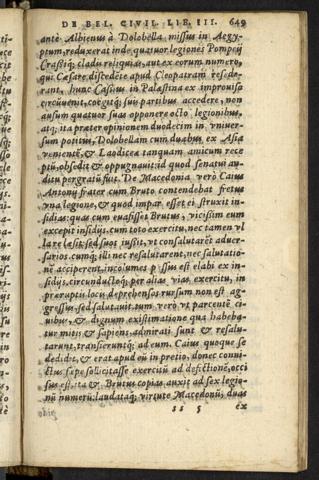 DE BEL. CIVIL. LIB. III. 649
antè Albienus à Dolobella missus in Aegy-
ptum, reduxerat inde quatuor legiones Pompeij
Crassiq; cladis reliquias, aut ex eorum numero,
qui Cæsare discedēte apud Cleopatram resede-
rant, hunc Casius in Palæstina ex improuiso
circūuenit, coëgitq; suis partibus accedere, non
ausum quatuor suas opponere octo legionibus,
atq; ita præter opinionem duodecim in vniuer-
sum potitus, Dolobellam cum duabus ex Asia
venientē, & Laodicea tanquam amicum rece
ptū, obsedit & oppugnauit: id quod senatui au-
ditu pergratū fuit. De Macedonia verò Caius
Antony frater cum Bruto contendebat fretus
vna legione, & quod impar esset ei struxit in-
sidias: quas cum euasisset Brutus, vicissim eum
excepit insidijs cum toto exercitu, nec tamen vl
la re læsit: sed suos iussit, vt consalutarēt aduer-
sarios. cumq; illi nec resalutarent, nec salutatio-
nē acciperent, incolumes passus est elabi ex in-
sidijs. circunductoq; per alias vias exercitu, in
præruptis locis deprehensos rursum non est ag-
gressus, sed salutauit. tum verò vt parcentē ci-
uibus, & dignum existimatione qua habeba-
tur mitis & sapiens, admirati sunt & resalu-
tarunt, transieruntq; ad eum. Caius quoque se
dedidit, & erat apud eū in pretio, donec conui-
ctus sæpe sollicitasse exercitū ad defectionē, occi
sus est. ita & Brutus copias auxit ad sex legio-
nū numerū: laudataq; virtute Macedonū, duas
ss 5 ex